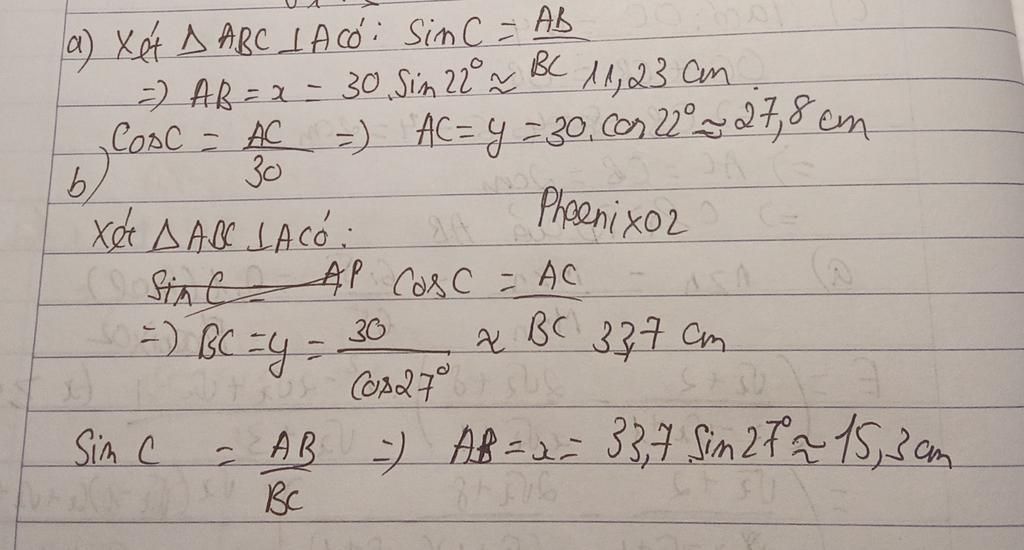 a) Xét Δ ABC ⊥ A có: Sin C = AB/BC
=) AB = x = 30.Sin22° ≈ 11,23 cm
CosC = AC/30 =) AC = y = 30.cos22° ≈ 27,8 cm
b)
Phoenix02
Xét Δ ABC ⊥ A có:
Sin C = AP CosC = AC/BC
=) BC = y = 30/Cos27° ≈ 33,7 cm
Sin C = AB/BC =) AB = x = 33,7.Sin27° ≈ 15,3 cm